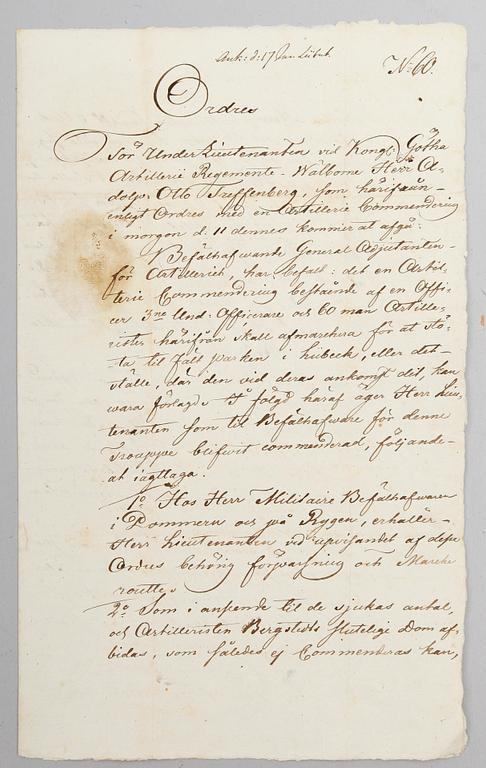 Ank: d: 17 Jan Lübek
No: 60.
Ordres
För Under Lieutenanten vid Kongl: Götha
Artillerie Regemente - Walborne Herr A-
dolph Otto Treffenberg, som härifrån
enligt Ordres med en Artillerie Commendering
i morgon d. 11 dennes kommer at afgå.
Befälhafwande General Adjutanten
för Artilleriet, har befalt: det en Artil-
lerie Commendering bestående af en Offi-
cer 3ne Und: Officerare och 60 man Artille-
rister härifrån skall afmarchera för at stö-
ta til Fält parken i Lubeck, eller det
ställe, där den vid deras ankomst dit, kan
wara förlagd. I följd häraf äger Herr Lieu-
tenanten som til Befälhafware för denne
Trouppe blifwit commenderad, följande
at iagttaga.
1o Hos Herr Militaire Befälhafwaren
i Pommern och på Rygen, erhåller
Herr Lieutenanten vid upvisandet af desse
Ordres behörig förpassning och Marche
routte.
2o Som i anseende til de sjukas antal,
och Artilleristen Bergstedts slutelige Dom af-
bidas, som således ej Commenderas kan,